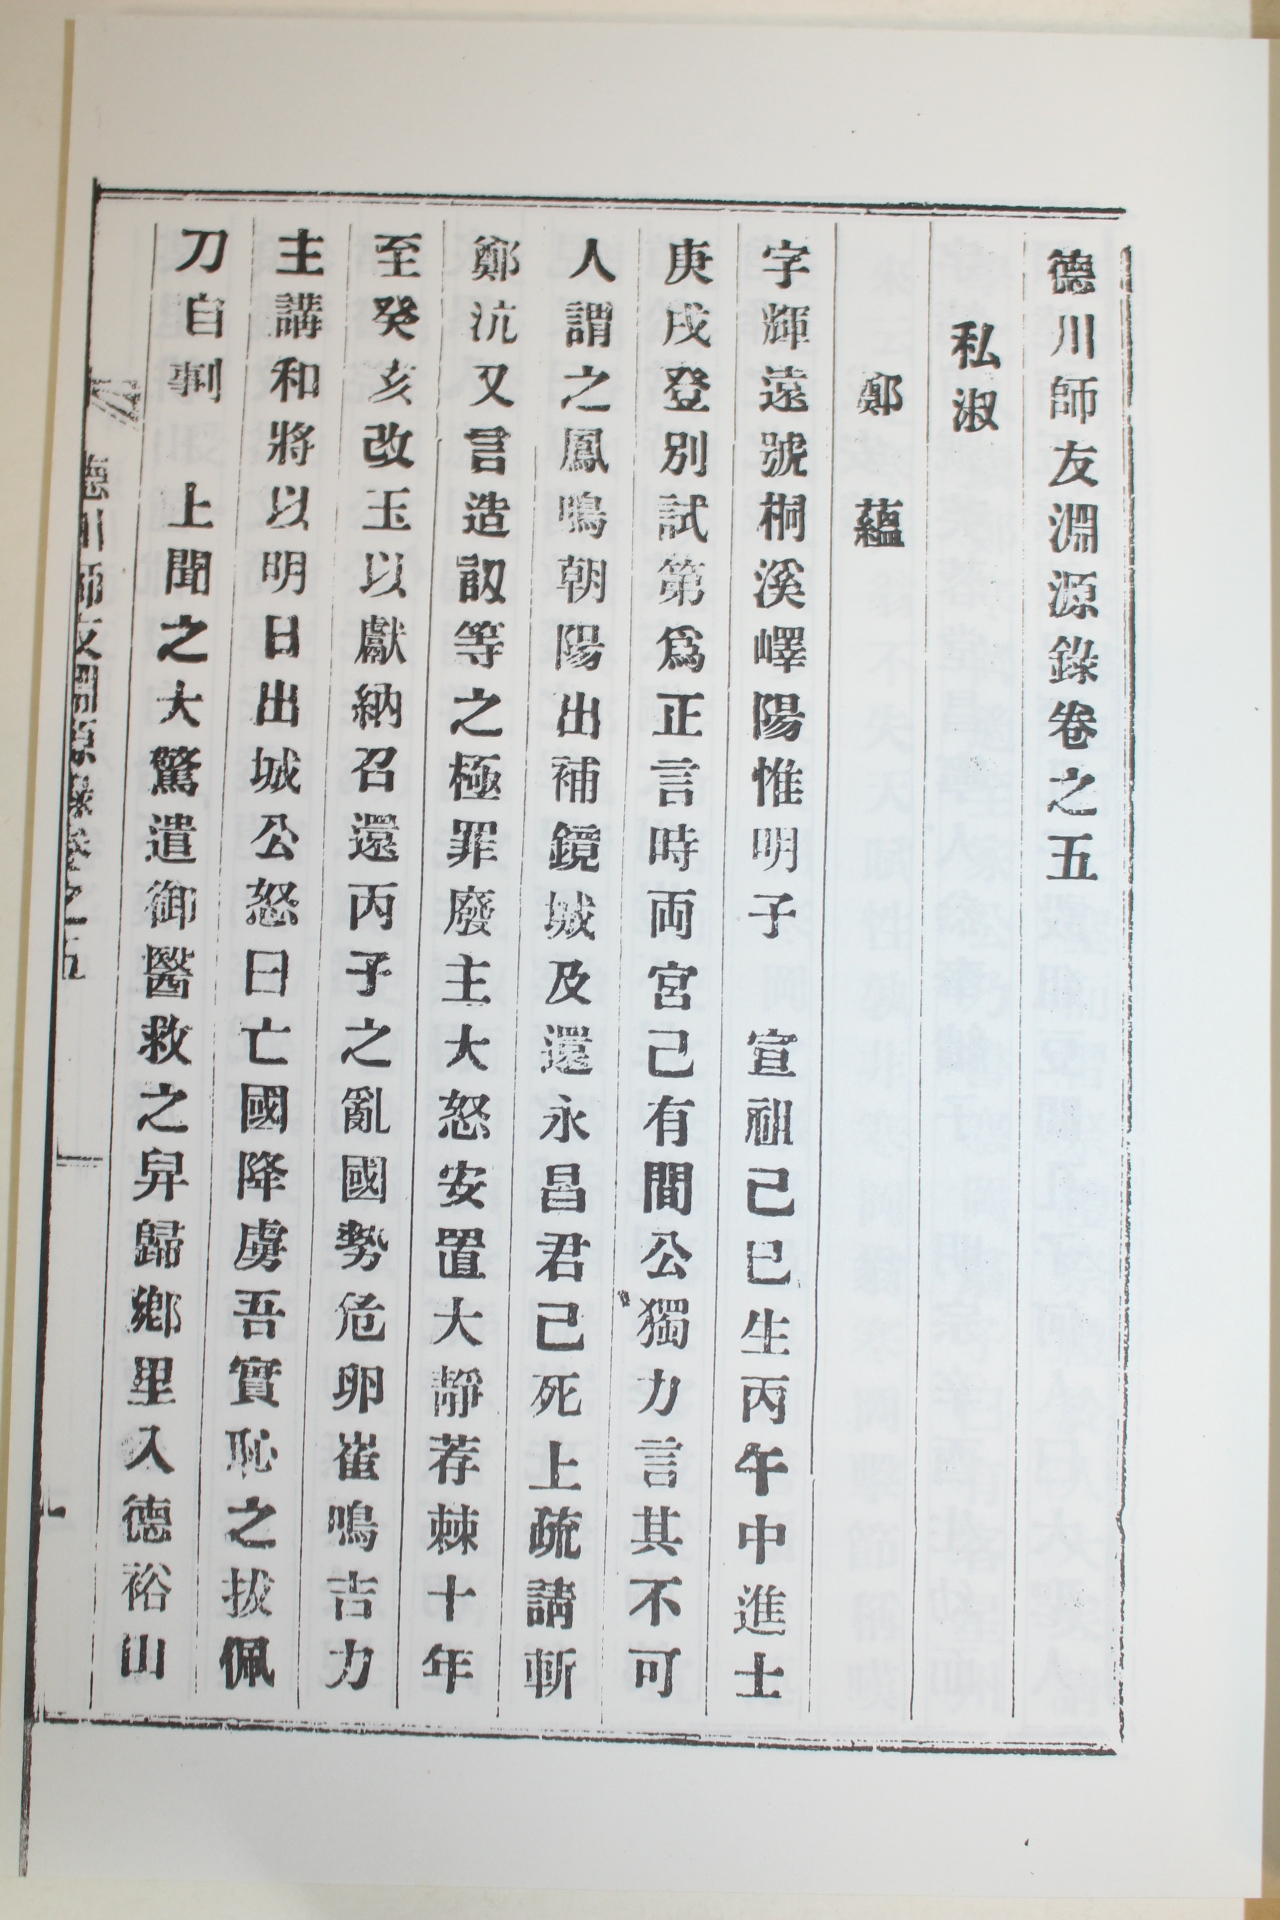 德川師友淵源錄卷之五
私淑
鄭蘊
字輝遠號桐溪嶧陽惟明子　宣祖己巳生丙午中進士
庚戌登別試第爲正言時両宮己有間公獨力言其不可
人謂之鳳鳴朝陽出補鏡城及還永昌君己死上疏請斬
鄭沆又言造訒等之極罪廢主大怒安置大靜荐棘十年
至癸亥改玉以獻納召還丙子之亂國勢危卵崔鳴吉力
主講和將以明日出城公怒曰亡國降虜吾實恥之拔佩
刀自剚　上聞之大驚遣御醫救之舁歸鄉里入德裕山
德川師友淵源錄卷之五
一